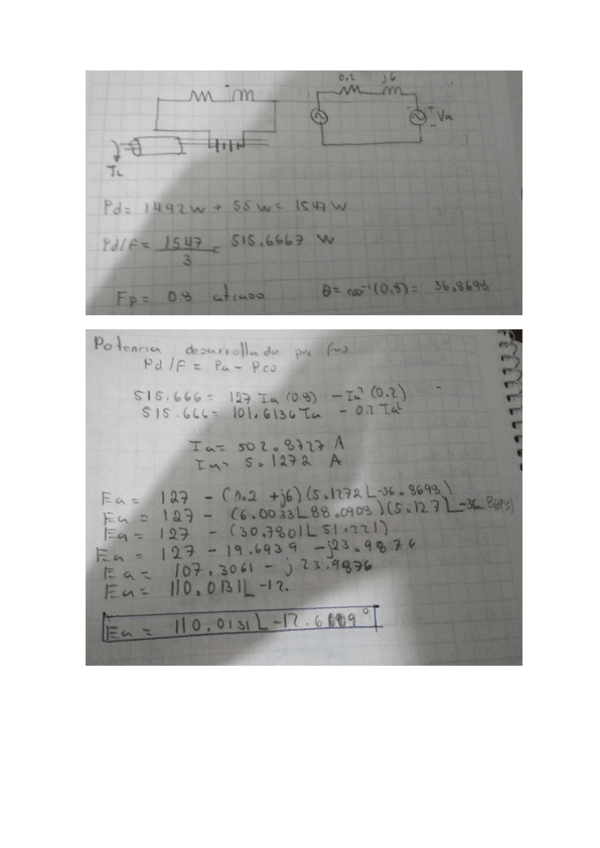 0.2 j6
Va
TL
Pd = 1492 W + 55 W = 1547 W
Pd/f = 1547/3 = 515.6667 W
Fp = 0.8 atraso θ = cos⁻¹(0.8) = 36.8698
Potencia desarrollada por fase
Pd/f = Pa - Pcu
515.666 = 127 Ia (0.8) - Ia² (0.2)
515.666 = 101.6136 Ia - 0.2 Ia²
Ia = 502.8727 A
Ia = 5.1272 A
Ea = 127 - (0.2 + j6)(5.1272∠-36.8698)
Ea = 127 - (6.0033∠88.0909)(5.127∠-36.8698)
Ea = 127 - (30.7801∠51.221)
Ea = 127 - 19.6939 - j23.9876
Ea = 107.3061 - j23.9876
Ea = 110.0131∠-12.
Ea = 110.0131∠-12.6009°